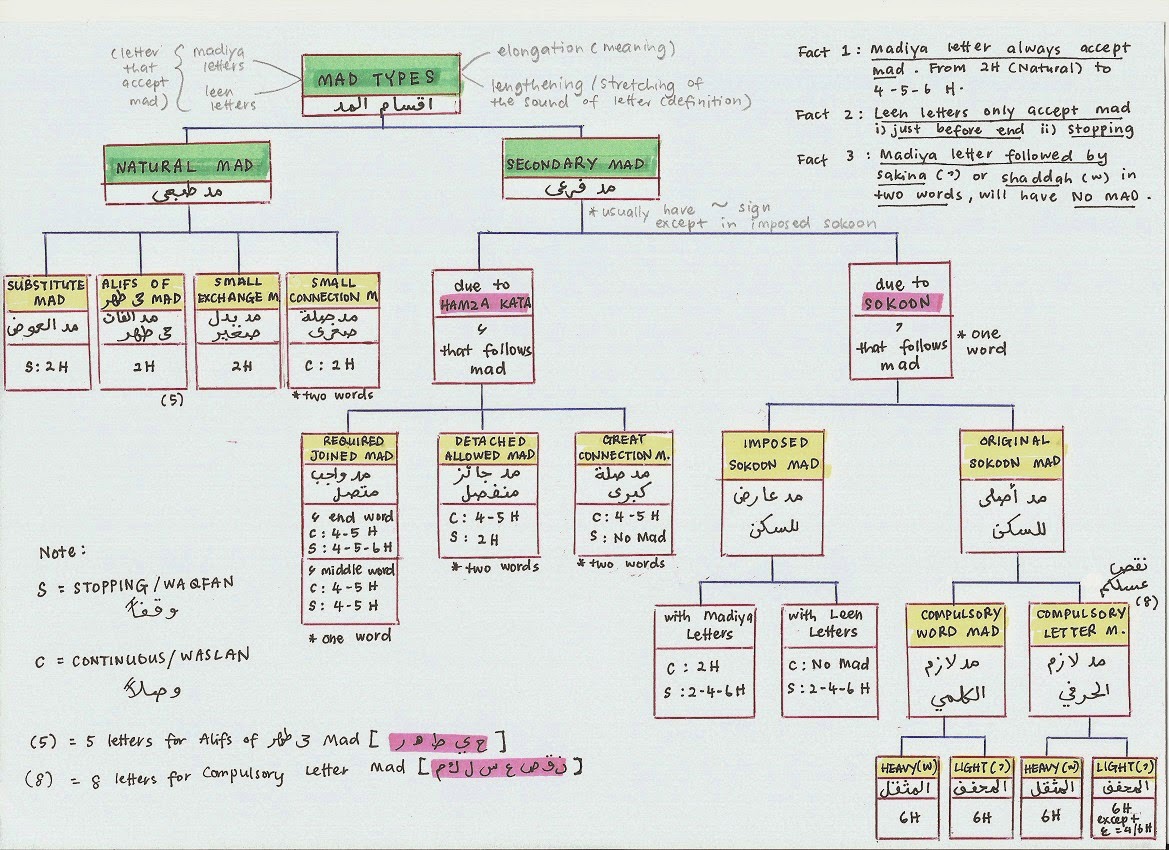 (letter
that
accept
mad)
madiya
letters
leen
letters
MAD TYPES
اقسام المد
elongation (meaning)
lengthening / stretching of
the sound of letter (definition)
Fact 1: Madiya letter always accept
mad. From 2H (Natural) to
4-5-6 H.
Fact 2: Leen letters only accept mad
i) just before end ii) stopping
Fact 3: Madiya letter followed by
sakina (ˀ) or shaddah (w) in
two words, will have NO MAD.
NATURAL MAD
مد طبعي
SECONDARY MAD
مد فرعى
* usually have ~ sign
except in imposed sokoon
SUBSTITUTE
MAD
مد العوض
S: 2H
ALIFS OF
حى طهر MAD
مد الفات
حى طهر
2H
(5)
SMALL
EXCHANGE M
مد بدل
صغير
2H
SMALL
CONNECTION M
مد صلة
صغرى
C: 2H
* two words
due to
HAMZA KATA
ء
that follows
mad
due to
SOKOON
that follows
mad
* one
word
REQUIRED
JOINED MAD
مد واجب
متصل
ء end word
C: 4-5 H
S: 4-5-6H
ء middle word
C: 4-5H
S: 4-5H
* one word
DETACHED
ALLOWED MAD
مد جائز
منفصل
C: 4-5 H
S: 2H
* two words
GREAT
CONNECTION M.
مد صلة
كبرى
C: 4-5 H
S: No Mad
* two words
IMPOSED
SOKOON MAD
مد عارض
للسكن
ORIGINAL
SOKOON MAD
مد أصلى
للسكن
with Madiya
Letters
C: 2H
S: 2-4-6H
with Leen
Letters
C: No Mad
S: 2-4-6H
COMPULSORY
WORD MAD
مد لازم
الكلمي
نقص
عسلكم
(8)
COMPULSORY
LETTER M.
مد لازم
الحرفي
HEAVY (w)
المثقل
6H
LIGHT (ˀ)
المخفف
6H
HEAVY (w)
المثقل
6H
LIGHT (ˀ)
المخفف
6H
except
ع = 4/6H
Note:
S = STOPPING / WAQFAN
وقفاً
C = CONTINUOUS / WASLAN
وصلاً
(5) = 5 letters for Alifs of حى طهر Mad [ ح ي ط ه ر ]
(8) = 8 letters for Compulsory Letter Mad [ ن ق ص ع س ل ك م ]